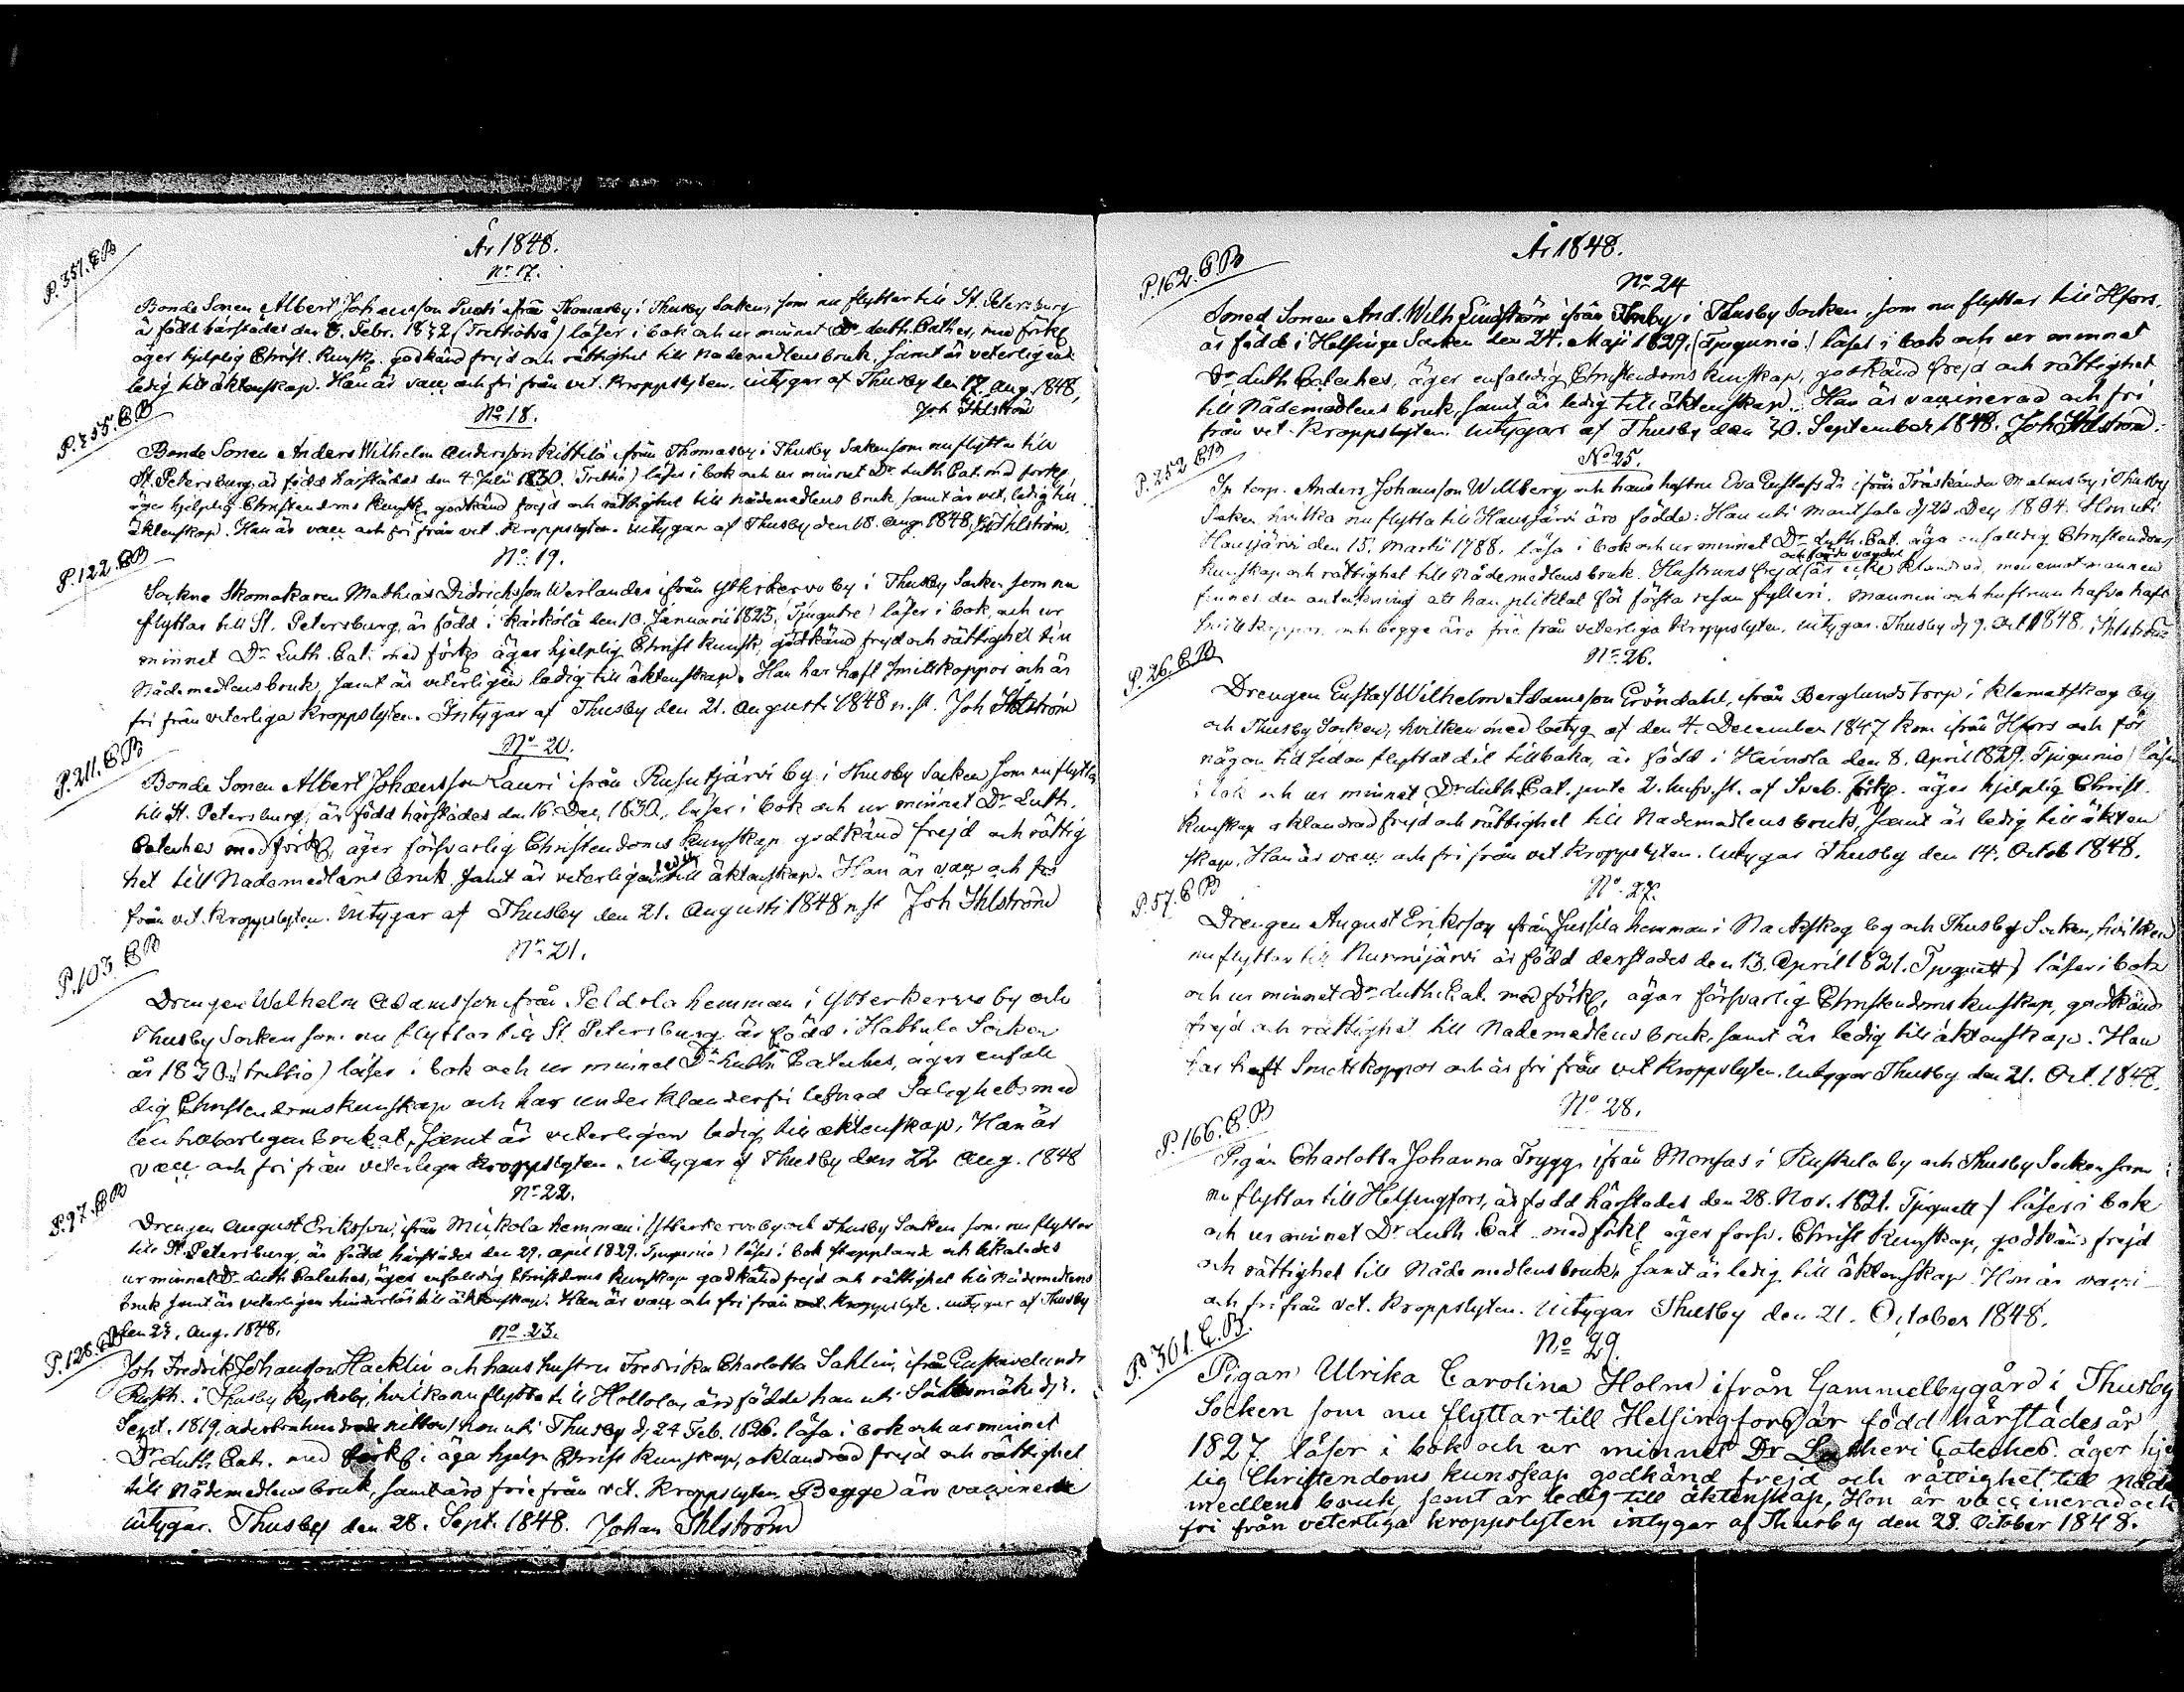 År 1848.
No. 17.
P. 351. C.B
Bonde Sonen Albert Johansson ifrån Thomasby i Thusby Socken, som nu flyttar till St. Petersburg
är född härstädes den 8. Febr. 1832 (Trettiotvå) läser i bok och ur minnet Dr. Luth. Cathes, med förkl.
äger hjelplig Christ. Kunsk. godkänd frejd och rättighet till Nademedlens bruk, samt är veterligen
ledig till äktenskap. Han är vacc och fri från vet. Kroppslyten. intygar af Thusby den 17 Aug. 1848,
Joh Ihlström
No 18.
P. 355. C.B
Bonde Sonen Anders Wilhelm Andersson Kittilä ifrån Thomasby i Thusby Socken som nu flyttar till
St. Petersburg, är född härstädes den 4. Julii 1830. (Trettio) läser i bok och ur minnet Dr Luth Cat. med förkl.
äger hjelplig Christendoms Kunsk. godkänd frejd och rättighet till nådemedlens bruk samt är vet. ledig till
äktenskap. Han är vacc och fri från vet. Kroppslyten. intygar af Thusby den 18. Aug. 1848, J. Ihlström.
No. 19.
P. 122. C.B
Sockne Skomakaren Mathias Didricksson Werlander ifrån Ytterkervo by i Thusby Socken som nu
flyttar till St. Petersburg, är född i Kärkölä den 10. Januarii 1823. Tjugutre) läser i bok, och ur
minnet Dr. Luth. Cat. med förkl. äger hjelplig Christ Kunsk, godkänd frejd och rättighet till
Nådemedlens bruk, samt är veterligen ledig till äktenskap. Han har haft smittkoppor och är
fri från veterliga kroppslyten. Intygar af Thusby den 21. Augusti 1848 n. st. Joh Ihlström
No. 20.
P. 211. C.B
Bonde Sonen Albert Johansson Lauri ifrån Rusutjärvi by i Thusby Socken som nu flyttar
till St. Petersburg, är född härstädes den 16. Dec. 1830. läser i bok och ur minnet Dr. Luth.
Cateches med förkl, äger försvarlig Christendoms kunskap godkänd frejd och rättig
het till Nademedlens bruk samt är veterligen ledig till äktenskap. Han är vacc och fri
från vet. Kroppslyten. Intygar af Thusby den 21. Augusti 1848 n. st Joh Ihlström
No. 21.
P. 103 C.B
Drengen Wilhelm Adamsson ifrån Peldola hemman i Ytterkervo by och
Thusby Socken som nu flyttar till St. Petersburg är född i Hattula Socken
år 1830. (trettio) läser i bok och ur minnet Dr. Luth. Cateches, äger enfall
dig Christendomskunskap och har under klanderfri lefnad Salighetsmed
len behörligen brukat, samt är veterligen ledig till äktenskap. Han är
vacc och fri från veterliga kroppslyten. Intygar af Thusby den 22 Aug. 1848
No. 22.
P. 97. C.B
Drengen August Eriksson, ifrån Mickola hemman i Ytterkervo by och Thusby Socken som nu flyttar
till St. Petersburg, är född härstädes den 29. April 1829. Tjugunio) läser i bok stapplande och likaledes
ur minnet Dr. Luth Cateches, äger enfaldig Christdoms kunskap godkänd frejd och rättighet till Nådemedlens
bruk samt är veterligen hinderlös till äktenskap. Han är vacc och fri från vet. kroppslyte. intygar af Thusby
den 23. Aug. 1848.
No. 23.
P. 128. C.B
Joh Fredrik Johansson Hacklin och hans hustru Fredrika Charlotta Sahlin, ifrån Gustavelunds
i Thusby Kyrkoby, hvilka nu flytta till Hollola, äro födde han uti Sääksmäki d. 3.
Sept. 1819. adertonhundrade nitton) hon uti Thusby d. 24 Feb. 1826. läsa i bok och ur minnet
Dr. Luth. Cat. med förkl. äga hjelp Christ Kunskap, oklandrad frejd och rättighet
till Nådemedlens bruk, samt äro frie från vet. Kroppslyten. Begge äro vaccinerade
intygar. Thusby den 28. Sept. 1848. Johan Ihlström
År 1848.
No. 24
P. 162. C.B
Smed Sonen And. Wilh Lindström ifrån i Thusby Socken, som nu flyttar till Hfors,
är född i Helsinge Socken den 24. Maji 1829. (Tjugunio) läser i bok och ur minnet
Dr Luth Cateches, äger enfaldig Christendoms kunskap, godkänd frejd och rättighet
till Nådemedlens bruk, samt är ledig till äktenskap. Han är vaccinerad och fri
från vet. Kroppslyten. intygar af Thusby den 30. September 1848. Joh Ihlström.
No 25.
P. 252 C.B
torp. Anders Johansson Willberg och hans hustru Eva Gustafsdr ifrån Träskända Malmsby i Thusby
Socken hvilka nu flytta till Hausjärvi äro födde: Han uti Mäntsälä d. 21. Dec 1804. Hon uti
Hausjärvi den 15. Martii 1788. läsa i bok och ur minnet Dr. Luth. Cat. äga enfaldig Christendoms
kunskap och rättighet till Nådemedlens bruk. Hustruns frejd är icke klandrad, men emot mannen
finnes den anteckning att han pliktat för första resan fylleri. Mannen och hustrun hafva haft
koppor och begge äro frie från veterliga Kroppslyten. intygar. Thusby d. 9. Oct. 1848. Ihlström
No. 26.
P. 26. C.B
Drengen Gustaf Wilhelm Adamsson Gröndahl, ifrån Berglunds torp i Klemetskog by
och Thusby Socken, hvilken med betyg af den 4. December 1847 kom ifrån Hfors och för
någon tid sedan flyttat dit tillbaka, är född i Heinola den 8. April 1829. Tjugunio) läser
i bok och ur minnet Dr Luth Cat. jemte 2. hufv. st. af Sveb. förkl. äger hjelplig Christ.
kunskap oklandrad frejd och rättighet till Nademedlens bruk, samt är ledig till äkten
skap. Han är vacc och fri från vet. Kroppslyten. intygar Thusby den 14. Octob 1848.
No. 27.
P. 57. C.B
Drengen August Eriksson ifrån Jussila hemman i Nackskog by och Thusby Socken, hvilken
nu flyttar till Nurmijärvi är född derstädes den 13. April 1821. Tjuguett) läser i bok
och ur minnet Dr. Luth. Cat. med förkl, äger försvarlig Christendoms kunskap, godkänd
frejd och rättighet till Nademedlens bruk, samt är ledig till äktenskap. Han
har haft Smittkoppor och är fri från vet kroppslyten. intygar Thusby den 21. Oct. 1848.
No. 28.
P. 166. C.B
Pigan Charlotta Johanna Trygg ifrån Monsas i Ruskela by och Thusby Socken som
nu flyttar till Helsingfors, är född härstädes den 28. Nov. 1821. Tjuguett) läser i bok
och ur minnet Dr Luth. Cat med förkl. äger försv. Christ Kunskap, godkänd frejd
och rättighet till Nåde medlens bruk, samt är ledig till äktenskap. Hon är vacci
och fri från vet. Kroppslyten. Intygar Thusby den 21. October 1848.
No 29.
P. 301. C.B.
Pigan Ulrika Carolina Holm ifrån Gammelbygård i Thusby
Socken som nu flyttar till Helsingfors är född härstädes år
1827. läser i bok och ur minnet Dr Lutheri Cateches. äger hje
lig Christendoms kunskap godkänd frejd och rättighet till nåde
medlens bruk, samt är ledig till äktenskap, Hon är vaccinerad och
fri från veterliga kroppslyten intygar af Thusby den 28. October 1848.